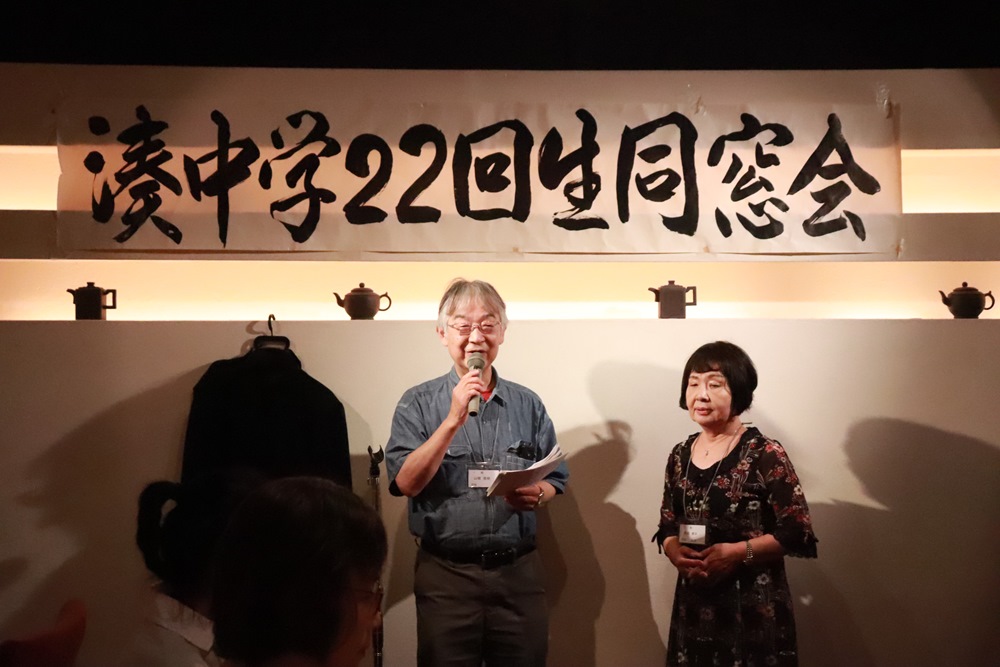 湊中学22回生同窓会